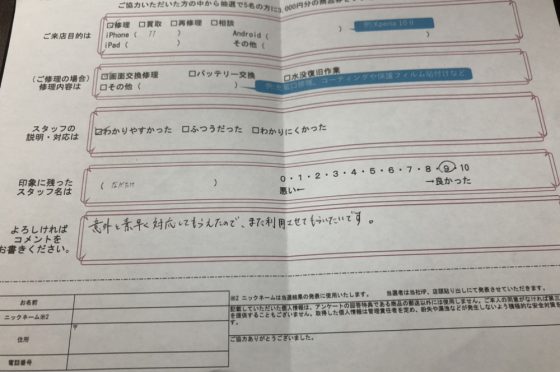 ご協力いただいた方の中から抽選で5名の方に3,000円分の商品券を
ご来店目的は
☑修理 □買取 □再修理 □相談
iPhone ( 11 ) Android ( ) 例:Xperia 10 Ⅱ
iPad ( ) その他 ( )
(ご修理の場合)
修理内容は
☑画面交換修理 □バッテリー交換 □水没復旧作業
□その他 ( ) コーティングや保護フィルム貼付けなど
スタッフの
説明・対応は
☑わかりやすかった □ふつうだった □わかりにくかった
印象に残った
スタッフ名は
( ) 0・1・2・3・4・5・6・7・8・9・10
悪い← →良かった
よろしければ
コメントを
お書きください。
意外と素早く対応してもらえたので、また利用させてもらいたいです。
お名前
ニックネーム※2
住所
〒
電話番号
※2 ニックネームは当選結果の発表に使用いたします。 当選者は当社HP、店頭貼り出しにて発表させていただきます。
記載していただいた個人情報は、アンケートの回答特典である商品の郵送以外には使用しません。ご本人の同意がなければ第三
を提供することもございません。取得した個人情報は管理責任者を定め、紛失や漏洩などが発生しないよう積極的な安全対策を
す。
ご協力ありがとうございました。